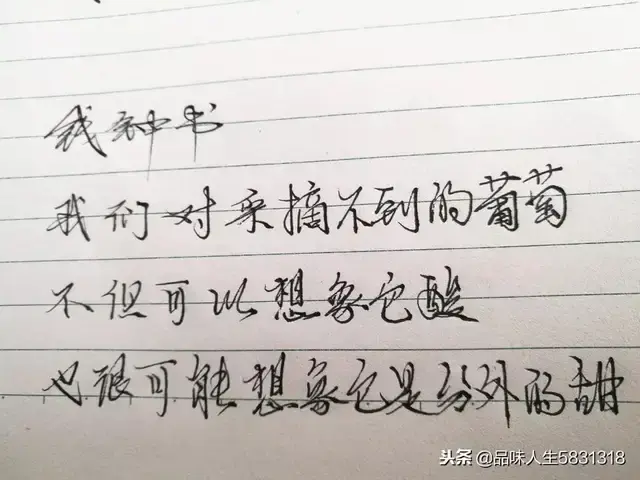 钱钟书
我们对采摘不到的葡萄
不但可以想象它酸
也很可能想象它是分外的甜
头条 @品味人生5831318